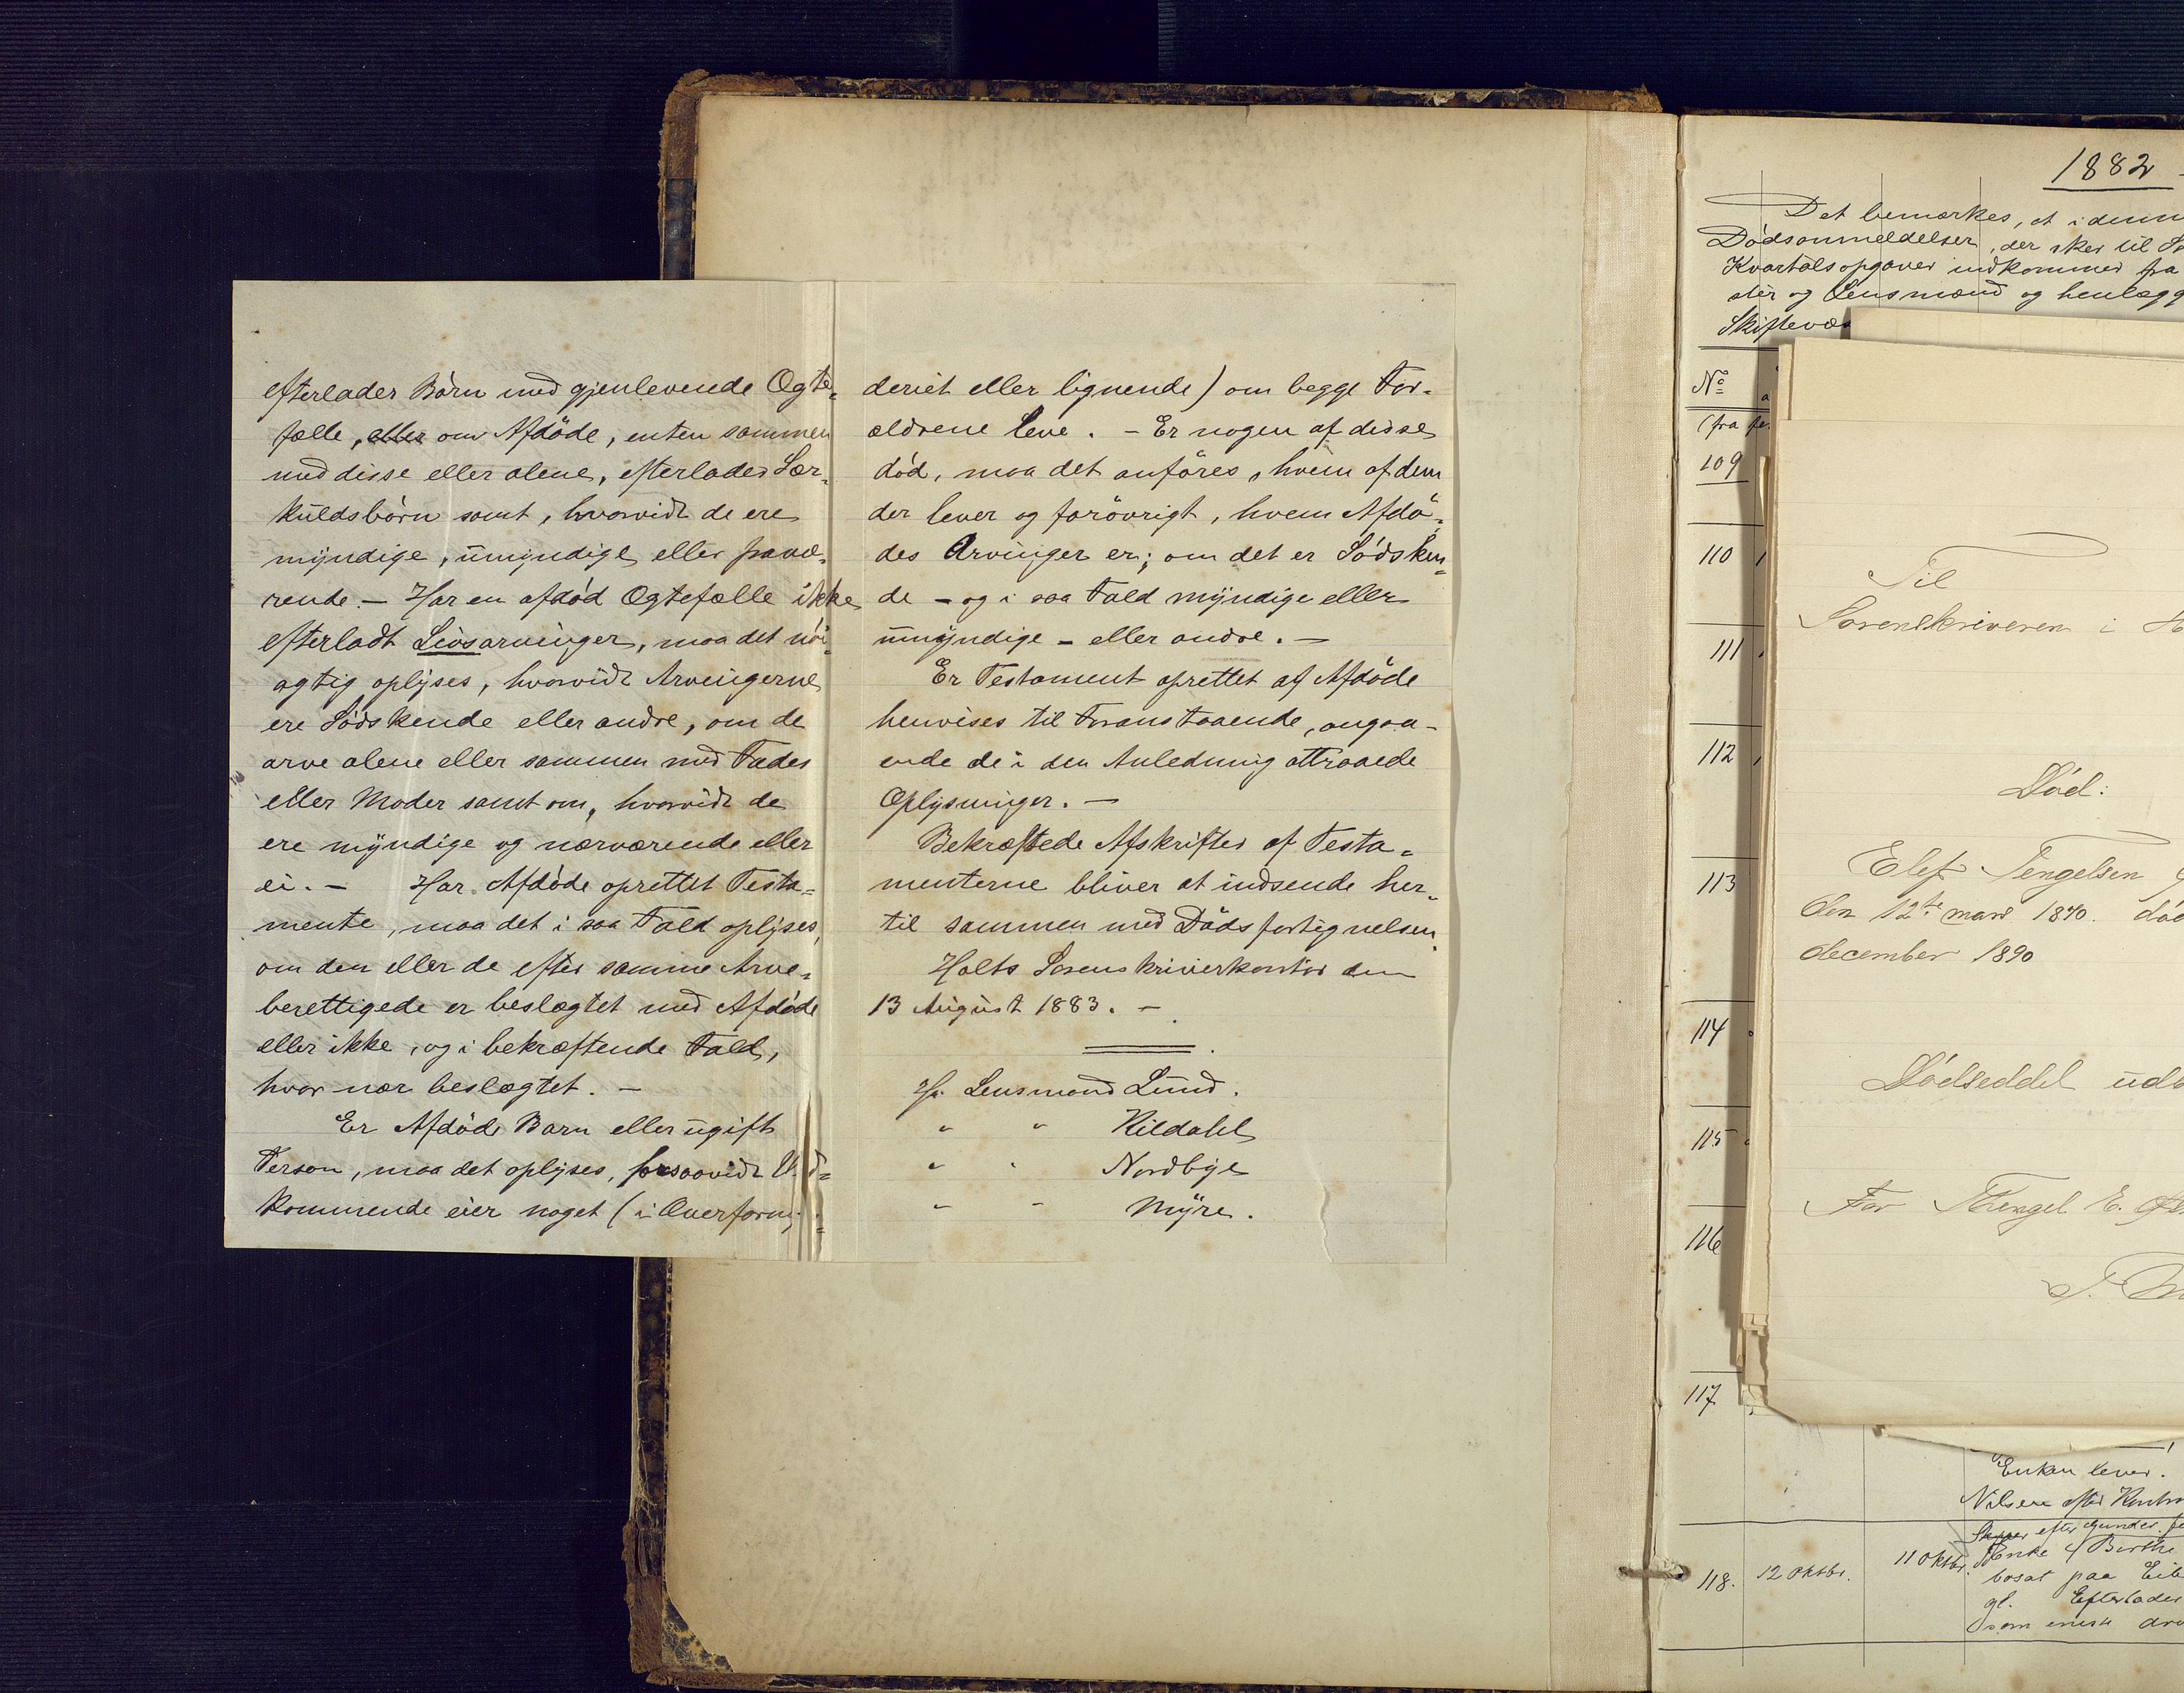 efterlader Börn med gjenlevende Ægte-
fælle, eller om Afdöde, enten sammen
med disse eller alene, efterlader Sær-
kuldsbörn samt, hvorvidt de ere
myndige, umyndige eller fravæ-
rende. - Har en afdöd Ægtefælle ikke
efterladt Livsarvinger, maa det nöi-
agtig oplyses, hvorvidt Arvingerne
ere Södskende eller andre, om de
arve alene eller sammen med Fader
eller Moder samt om, hvorvidt de
ere myndige og nærværende eller
ei. - Har Afdöde oprettet Testa-
mente, maa det i saa Fald oplyses,
om den eller de efter samme Arve-
berettigede er beslægtet med Afdöde
eller ikke, og i bekræftende Fald,
hvor nær beslægtet. -
Er Afdöde Barn eller ugift
Person, maa det oplyses, forsaavidt Ved-
kommende eier noget (i Overformyn-
deriet eller lignende) om begge For-
ældrene leve. - Er nogen af disse
död, maa det anföres, hvem af dem
der lever og forövrigt, hvem Afdö-
des Arvinger er; om det er Södsken-
de - og i saa Fald myndige eller
umyndige - eller andre. -
Er Testament oprettet af Afdöde
henvises til Foranstaaende, angaa-
ende de i den Anledning attraaede
Oplysninger. -
Bekræftede Afskrifter af Testa-
menterne bliver at indsende her-
til sammen med Dödsfortegnelsen.
Holts Sorenskriverkontor den
13 August 1883. -
Hr. Lensmand Lund.
" " Kildahl
" " Nordbye
" " Myre.
1882 -
Det bemærkes, at i denn
Dödsanmeldelser, der sker til So
Kvartalsopgaver indkommer fra
ster og Lensmænd og henlægg
Skiftevæs
No
(fra
109
110
111
112
113
114
115
116
117
Til
Sorenskriveren i
Död:
Elef Tengelsen
den 12te mars 1870. död
december 1890
Dödseddel uds
For Thengel E.
Enken lever.
Nilsen efter
efter Gunder
118. 12 Oktbr. 11 Oktbr. Enke Birthe
bosat paa Eik
gl. Efterlader
som eneste arv